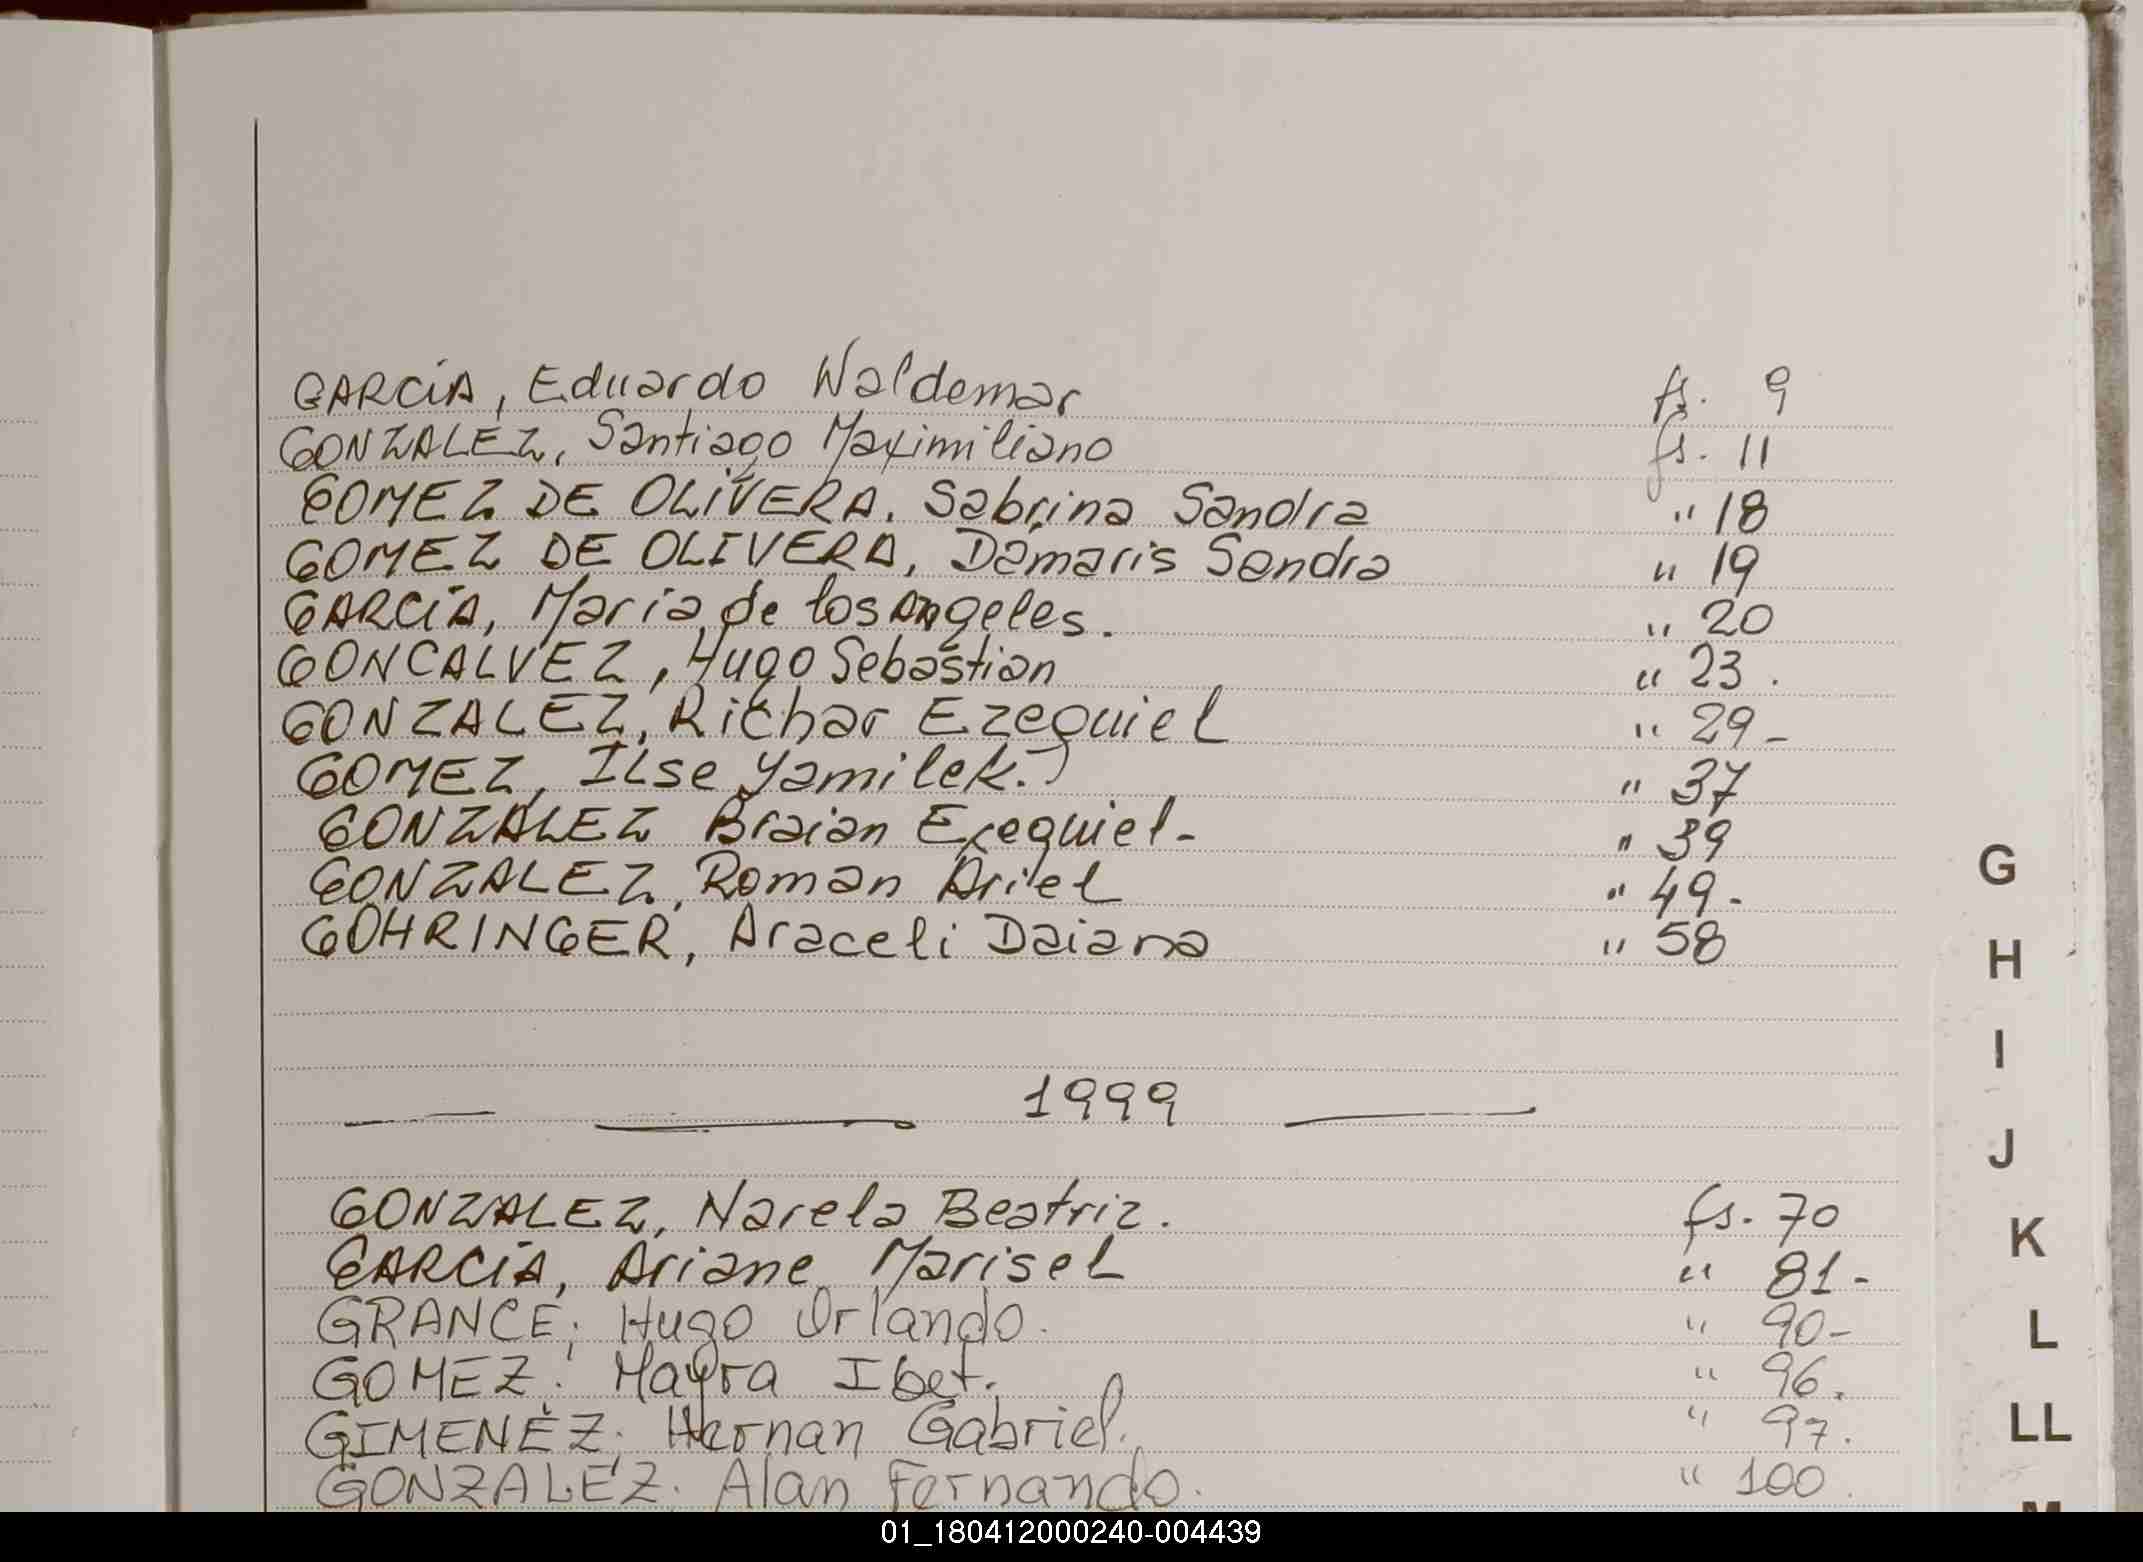 GARCíA, Eduardo Waldemar fs. 9
GONZALEZ, Santiago Maximiliano fs. 11
GOMEZ DE OLIVERA, Sabrina Sandra " 18
GOMEZ DE OLIVERA, Damaris Sandra " 19
GARCíA, María de los Angeles. " 20
GONCALVEZ, Hugo Sebastian " 23.
GONZALEZ, Richar Ezequiel " 29-
GOMEZ, ILse Yamilek. " 37
GONZALEZ Braian Exequiel- " 39
GONZALEZ, Roman Ariel " 49-
GOHRINGER, Araceli Daiana " 58
1999
GONZALEZ, Narela Beatriz. fs. 70
GARCíA, Ariane Marisel " 81-
GRANCE; Hugo Orlando. " 90-
GOMEZ: Mayra Ibet. " 96.
GIMENEZ; Hernan Gabriel. " 97.
GONZALEZ. Alan Fernando. " 100.
G
H
I
J
K
L
LL
M
01_180412000240-004439